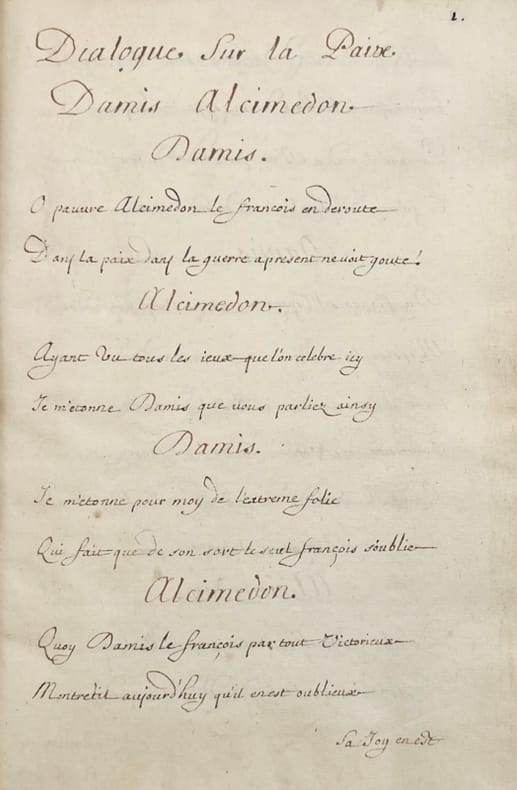 1.
Dialogue Sur la Paix
Damis Alcimedon
Damis.
O pauvre Alcimedon le francois en deroute
Dans la paix dans la guerre apresent ne voit goute!
Alcimedon.
Ayant vu tous les ieux que l'on celebre icy
Je m'etonne Damis que vous parliez ainsy
Damis.
Je m'etonne pour moy de l'extreme folie
Qui fait que de son sort le seul françois s'oublie
Alcimedon.
Quoy Damis le françois par tout Victorieux
Montretil aujourd'huy qu'il en est oublieux
Sa Joy en est